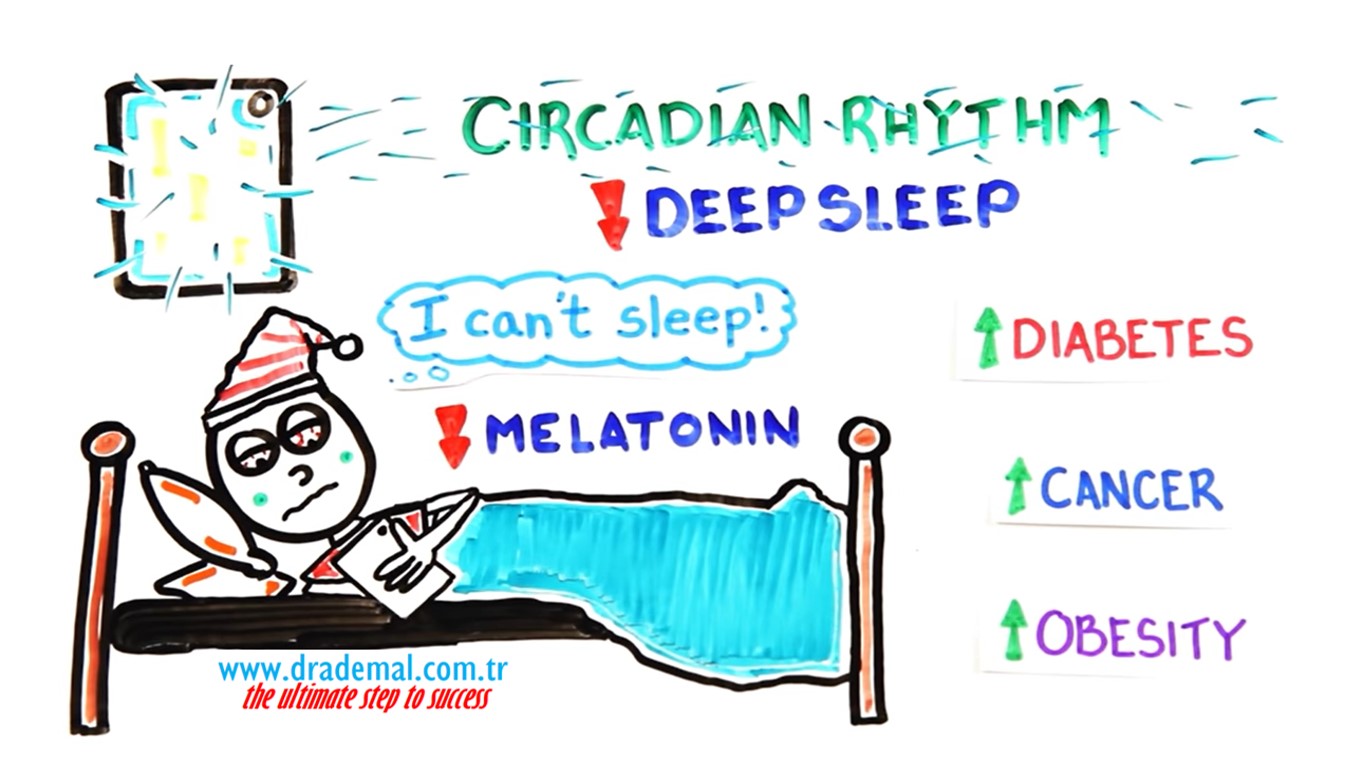 CIRCADIAN RHYTHM
DEEP SLEEP
I can't sleep!
DIABETES
MELATONIN
CANCER
OBESITY
www.drademal.com.tr
the ultimate step to success